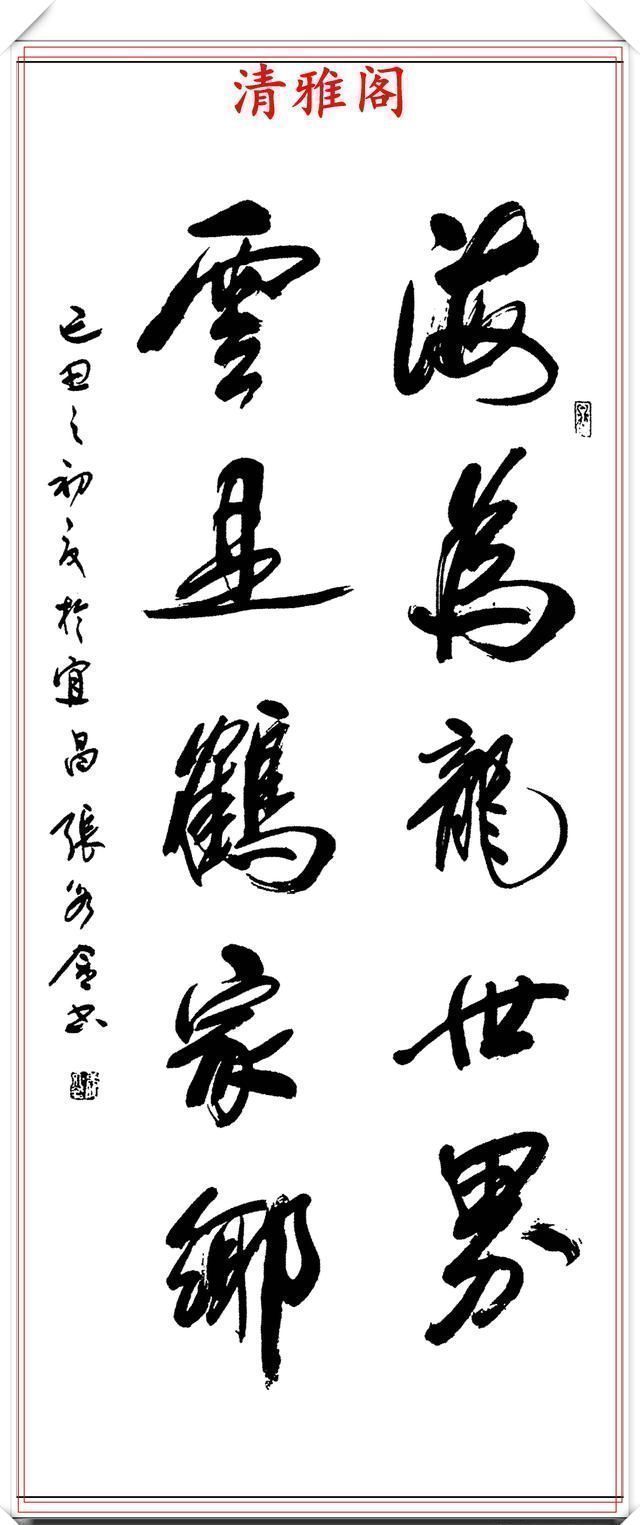 清雅阁
海為龍世界
雲是鶴家鄉
己丑之初夏於宜昌張前金書